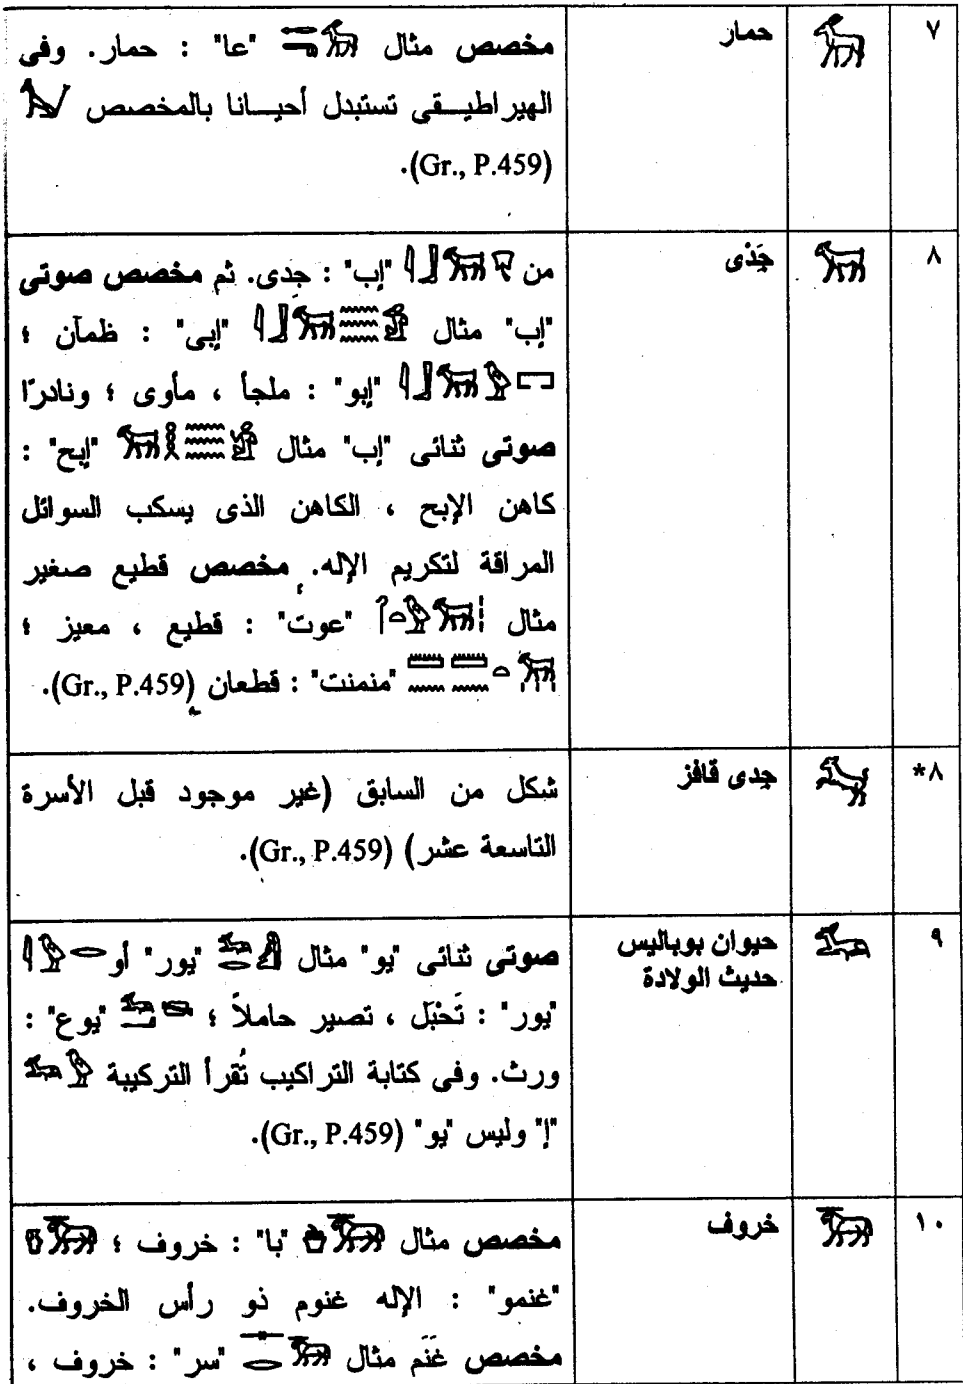 ٧ حمار مخصص مثال "عا" : حمار. وفى
الهيراطيقى تستبدل أحيانا بالمخصص
(Gr., P.459).
٨ جَدْى من "إب" : جدى. ثم مخصص صوتى
"إب" مثال "إبى" : ظمآن ؛
"إبو" : ملجأ ، مأوى ؛ ونادرًا
صوتى ثنائى "إب" مثال "إبح" :
كاهن الإبح ، الكاهن الذى يسكب السوائل
المراقة لتكريم الإله. مخصص قطيع صغير
مثال "عوت" : قطيع ، معيز ؛
"منمنت" : قطعان (Gr., P.459).
٨* جدى قافز شكل من السابق (غير موجود قبل الأسرة
التاسعة عشر) (Gr., P.459).
٩ حيوان بوباليس صوتى ثنائى "يو" مثال "يور" أو
حديث الولادة "يور" : تَحْبَل ، تصير حاملاً ؛ "يوع" :
ورث. وفى كتابة التراكيب تُقرأ التركيبة
"إ" وليس "يو" (Gr., P.459).
١٠ خروف مخصص مثال "با" : خروف ؛
"غنمو" : الإله غنوم ذو رأس الخروف.
مخصص غَنَم مثال "سر" : خروف ،